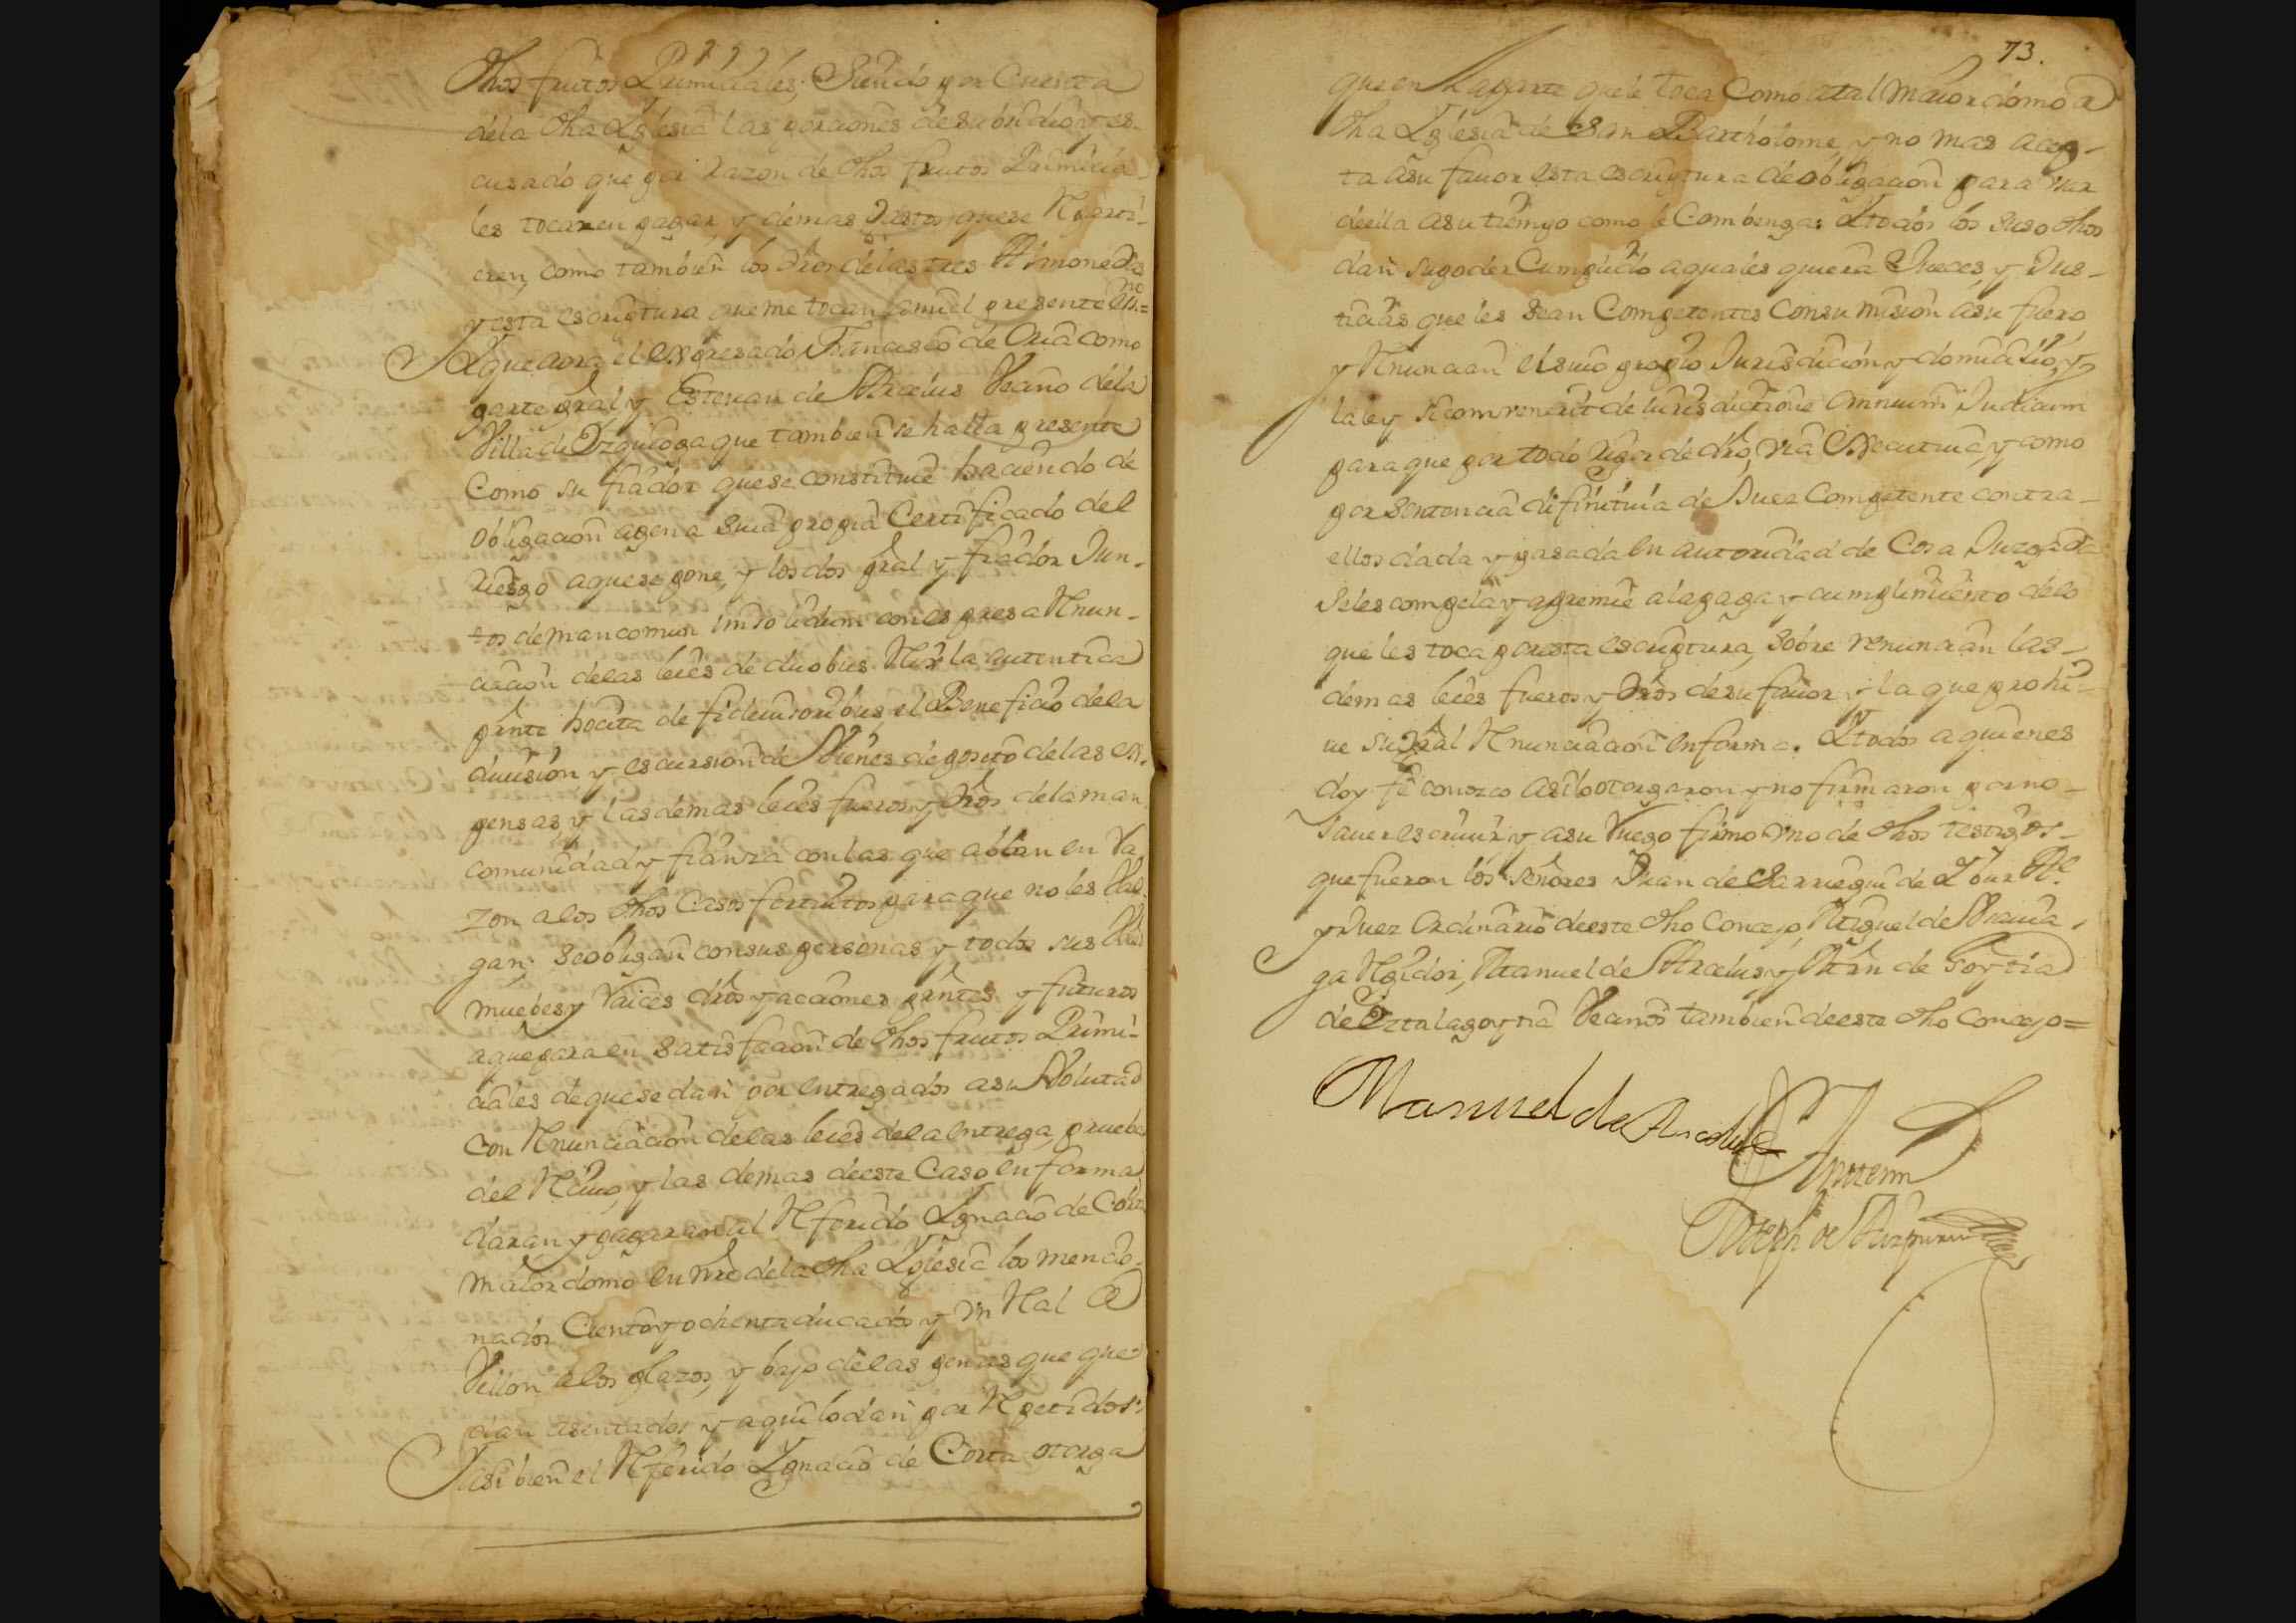 dhos frutos Primiciales; Siendo por Cuenta
dela dha Yglesia las porciones de subsidio y es-
cusado que por razon de dhos frutos Primicia-
les tocaren pagar, y demas Gastos que se Reparti-
eren, como tambien los dros delas tres Almonedas
y esta escriptura que me tocan ami el presente essno=
Y que aora el expresado Francisco de Oria como
parte prãl y Estevan de Arcelus Vecino dela
Villa de Ezquioga que tambien se halla presente
Como su fiador que se constituie haciendo de
obligacion agena suia propia Certificado del
riesgo aque se pone, y los dos prãl y fiador Jun-
tos demancomun insolidum con espresa Renun-
ciacion delas leies de duobus Rex la autentica
preste hocita de fideiusoribus el Beneficio dela
division y escursion de Vienes deposito delas es-
pensas y las demas leies fueros y dros dela man
comunidad y fianza con las que ablan en Ra
zon alos dhos Casos fortuitos para que no les Val-
gan: Se obligan con sus personas y todos sus Vies
muebes y Raices dros y acciones pntes y futuros
aque para en satisfacion de dhos frutos Primi-
ciales de que se dan por entregados asu Volutad
con Renunciacion delas leies dela entrega, prueba
del Recivo, y las demas deeste Caso en forma
daran y pagaran al Referido Ygnacio de Corta
maiordomo en nre dela dha Yglesia los mencio-
nados Ciento y ochenta ducados y un Real de
Vellon alos plazos, y bajo delas penas que que-
dan asentados y aqui lo dan por Repetidos:
Y asi bien el Referido Ygnacio de Corta otorga
73.
que en la parte que le toca Como atal maiordomo de
dha Yglesia de San Bartholome, y no mas acep-
ta asu favor esta escriptura de obligacion para usar
deella asu tiempo como le Combenga: Y todos los suso dhos
dan su poder Cumplido aquales quiera Jueces, y Jus-
ticias que les sean Competentes con su mision asu fuero
y Renuncian el suio propio Jurisdicion y domicilio, y
la ley sicomvenerit de iurisdictione omnium Judicum
para que por todo rigor de dro, via Executiva, y como
por sentencia difinitiva de Juez Competente contra-
ellos dada y pasada en autoridad de Cosa Juzgada
seles compela y apremie ala paga y cumplimiento delo
que les toca por esta escriptura, sobre renuncian las-
demas leies fueros y dros de su favor y la que prohi-
ve su grãl Renunciacion en forma. Y todos aquienes
doy fe conozco asi lo otorgaron y no firmaron por no-
saver escrivir y asu ruego firmo uno de dhos testigos-
que fueron los señores Juan de Sarriegui de Ybur Ale
y Juez Ordinario deeste dho Concejo, Miguel de
ga Regidor, Manuel de Arcelus, y Mrñ de Goytia
de Vecinos tambien deeste dho Concejo=
Manuel de Arcelus
Ante mi
Joseph de